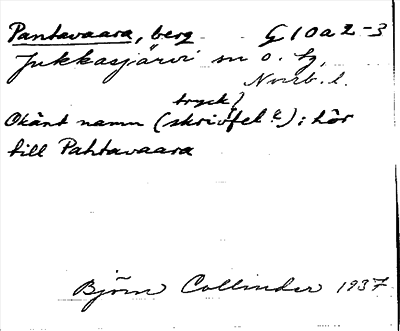 Pantavaara, berg G 10 a 2-3
Jukkasjärvi sn o. tg,
Norrb. l.
tryck)
Okänt namn (skrivfel?); hör
till Pahtavaara
Björn Collinder 1937